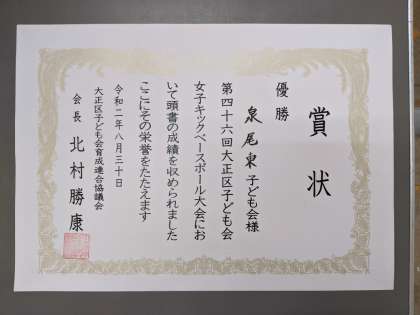 賞状
優勝
泉尾東子ども会様
第四十六回大正区子ども会
女子キックベースボール大会にお
いて頭書の成績を収められました
ここにその栄誉をたたえます
令和二年八月三十日
大正区子ども会育成連合協議会
会長 北村勝康